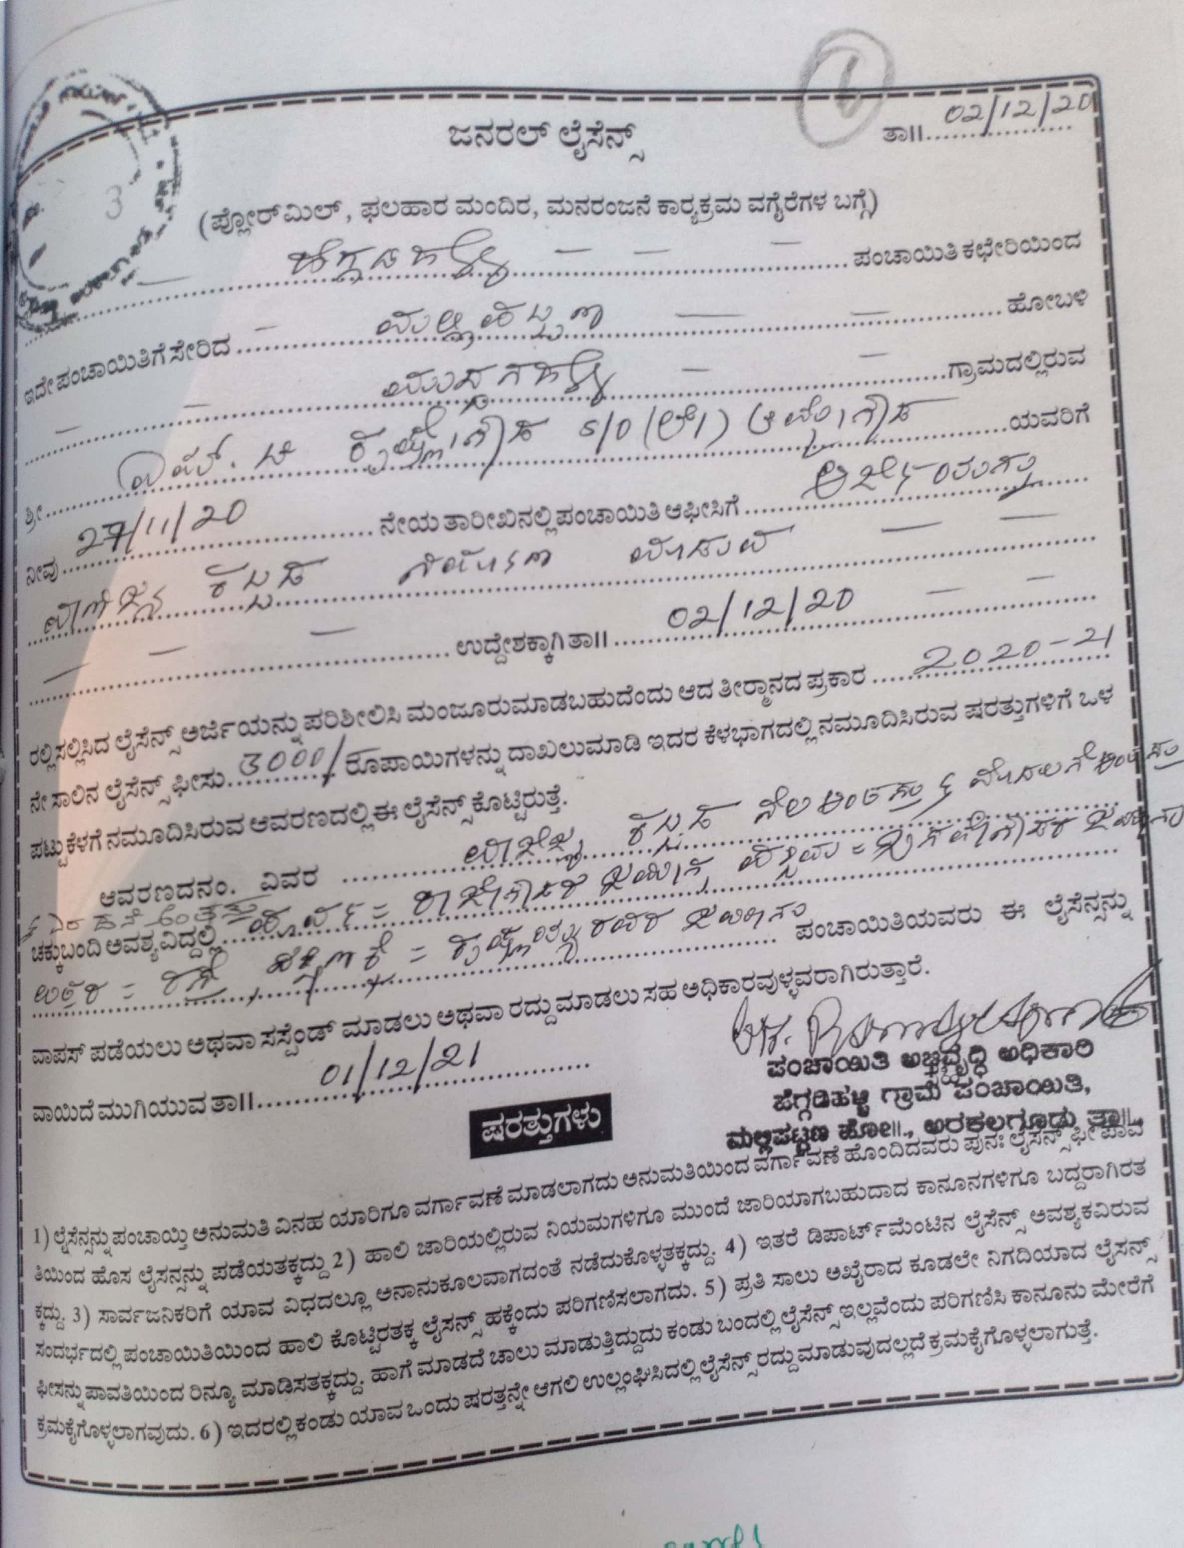 ಜನರಲ್ ಲೈಸೆನ್ಸ್
ತಾ॥ 02/12/20
3
(ಫ್ಲೋರ್‌ಮಿಲ್, ಫಲಹಾರ ಮಂದಿರ, ಮನರಂಜನೆ ಕಾರ್‍ಯಕ್ರಮ ವಗೈರೆಗಳ ಬಗ್ಗೆ)
ಹೆಗ್ಗಡಿಹಳ್ಳಿ ಪಂಚಾಯಿತಿ ಕಛೇರಿಯಿಂದ
ಇದೇ ಪಂಚಾಯಿತಿಗೆ ಸೇರಿದ ಮಲ್ಲಿಪಟ್ಟಣ ಹೋಬಳಿ
ಗ್ರಾಮದಲ್ಲಿರುವ
ಶ್ರೀ ಎಸ್. ಟಿ ಕೃಷ್ಣೇಗೌಡ S/O (ಲೇ) ಯವರಿಗೆ
ನೀವು 27/11/20 ನೇಯ ತಾರೀಖಿನಲ್ಲಿ ಪಂಚಾಯಿತಿ ಆಫೀಸಿಗೆ
ವಾಣಿಜ್ಯ ಕಟ್ಟಡ ನಿರ್ಮಾಣ ಮಾಡುವ
ಉದ್ದೇಶಕ್ಕಾಗಿ ತಾ॥ 02/12/20
ರಲ್ಲಿ ಸಲ್ಲಿಸಿದ ಲೈಸೆನ್ಸ್ ಅರ್ಜಿಯನ್ನು ಪರಿಶೀಲಿಸಿ ಮಂಜೂರುಮಾಡಬಹುದೆಂದು ಆದ ತೀರ್ಮಾನದ ಪ್ರಕಾರ 2020-21
ನೇ ಸಾಲಿನ ಲೈಸೆನ್ಸ್ ಫೀಸು 3000/ ರೂಪಾಯಿಗಳನ್ನು ದಾಖಲುಮಾಡಿ ಇದರ ಕೆಳಭಾಗದಲ್ಲಿ ನಮೂದಿಸಿರುವ ಷರತ್ತುಗಳಿಗೆ ಒಳ
ಪಟ್ಟು ಕೆಳಗೆ ನಮೂದಿಸಿರುವ ಆವರಣದಲ್ಲಿ ಈ ಲೈಸೆನ್ಸ್ ಕೊಟ್ಟಿರುತ್ತೆ.
ಆವರಣದ ನಂ. ವಿವರ ವಾಣಿಜ್ಯ ಕಟ್ಟಡ ನೆಲ ಅಂತಸ್ತು
ಚಕ್ಕುಬಂದಿ ಅವಶ್ಯವಿದ್ದಲ್ಲಿ ಪೂರ್ವ = ಪಶ್ಚಿಮ =
ಉತ್ತರ = ರಸ್ತೆ, ದಕ್ಷಿಣಕ್ಕೆ = ಪಂಚಾಯಿತಿಯವರು ಈ ಲೈಸೆನ್ಸನ್ನು
ವಾಪಸ್ ಪಡೆಯಲು ಅಥವಾ ಸಸ್ಪೆಂಡ್ ಮಾಡಲು ಅಥವಾ ರದ್ದುಮಾಡಲು ಸಹ ಅಧಿಕಾರವುಳ್ಳವರಾಗಿರುತ್ತಾರೆ.
ವಾಯಿದೆ ಮುಗಿಯುವ ತಾ॥ 01/12/21
ಪಂಚಾಯಿತಿ ಅಭಿವೃದ್ಧಿ ಅಧಿಕಾರಿ
ಹೆಗ್ಗಡಿಹಳ್ಳಿ ಗ್ರಾಮ ಪಂಚಾಯಿತಿ,
ಮಲ್ಲಿಪಟ್ಟಣ ಹೋ॥, ಅರಕಲಗೂಡು ತಾ॥.
ಷರತ್ತುಗಳು
1) ಲೈಸೆನ್ಸನ್ನು ಪಂಚಾಯ್ತಿ ಅನುಮತಿ ವಿನಹ ಯಾರಿಗೂ ವರ್ಗಾವಣೆ ಮಾಡಲಾಗದು ಅನುಮತಿಯಿಂದ ವರ್ಗಾವಣೆ ಹೊಂದಿದವರು ಪುನಃ ಲೈಸೆನ್ಸ್ ಫೀ ಪಾವ
ತಿಯಿಂದ ಹೊಸ ಲೈಸನ್ಸನ್ನು ಪಡೆಯತಕ್ಕದ್ದು 2) ಹಾಲಿ ಜಾರಿಯಲ್ಲಿರುವ ನಿಯಮಗಳಿಗೂ ಮುಂದೆ ಜಾರಿಯಾಗಬಹುದಾದ ಕಾನೂನಗಳಿಗೂ ಬದ್ದರಾಗಿರತ
ಕ್ಕದ್ದು. 3) ಸಾರ್ವಜನಿಕರಿಗೆ ಯಾವ ವಿಧದಲ್ಲೂ ಅನಾನುಕೂಲವಾಗದಂತೆ ನಡೆದುಕೊಳ್ಳತಕ್ಕದ್ದು. 4) ಇತರೆ ಡಿಪಾರ್ಟ್‌ಮೆಂಟಿನ ಲೈಸೆನ್ಸ್ ಅವಶ್ಯಕವಿರುವ
ಸಂದರ್ಭದಲ್ಲಿ ಪಂಚಾಯಿತಿಯಿಂದ ಹಾಲಿ ಕೊಟ್ಟಿರತಕ್ಕ ಲೈಸನ್ಸ್ ಹಕ್ಕೆಂದು ಪರಿಗಣಿಸಲಾಗದು. 5) ಪ್ರತಿ ಸಾಲು ಅಖೈರಾದ ಕೂಡಲೇ ನಿಗದಿಯಾದ ಲೈಸನ್ಸ್
ಫೀಸನ್ನು ಪಾವತಿಯಿಂದ ರಿನ್ಯೂ ಮಾಡಿಸತಕ್ಕದ್ದು. ಹಾಗೆ ಮಾಡದೆ ಚಾಲು ಮಾಡುತ್ತಿದ್ದುದು ಕಂಡು ಬಂದಲ್ಲಿ ಲೈಸೆನ್ಸ್ ಇಲ್ಲವೆಂದು ಪರಿಗಣಿಸಿ ಕಾನೂನು ಮೇರೆಗೆ
ಕ್ರಮಕೈಗೊಳ್ಳಲಾಗುವುದು. 6) ಇದರಲ್ಲಿ ಕಂಡು ಯಾವ ಒಂದು ಷರತ್ತನ್ನೇ ಆಗಲಿ ಉಲ್ಲಂಘಿಸಿದಲ್ಲಿ ಲೈಸೆನ್ಸ್ ರದ್ದು ಮಾಡುವುದಲ್ಲದೆ ಕ್ರಮಕೈಗೊಳ್ಳಲಾಗುತ್ತೆ.